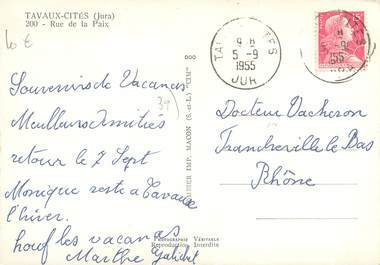 TAVAUX-CITÉS (Jura)
200 - Rue de la Paix
10 €
Souvenirs de Vacances
Meilleurs Amitiés
retour le 7 Sept
Monique reste à Tavaux
l'hiver.
houf les vacances
Marthe
39
COMBIER IMP. MACON (S.-et-L.) "CIM"
PHOTOGRAPHIE VÉRITABLE
Reproduction Interdite
TAVAUX-CITES
9 H
5 -9
1955
JURA
15
5 -9
1955
Docteur Vacheron
Francheville le Bas
Rhône